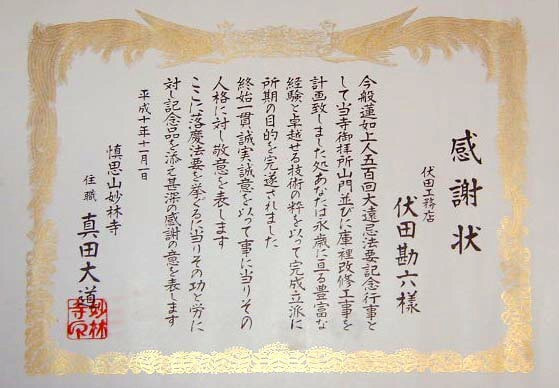 感謝状
伏田工務店
伏田勘六様
今般蓮如上人五百回大遠忌法要記念行事と
して当寺御拝所山門並びに庫裡改修工事を
計画致しました処あなたは永歳に亘る豊富な
経験と卓越せる技術の粋を以って完成立派に
所期の目的を完遂されました
終始一貫誠実、誠意を以って事に当りその
人格に対し敬意を表します
ここに落慶法要を挙ぐるに当りその功と労に
対し記念品を添え甚深の感謝の意を表します
平成十年十一月一日
慎思山妙林寺
住職 真田大道
妙林寺印